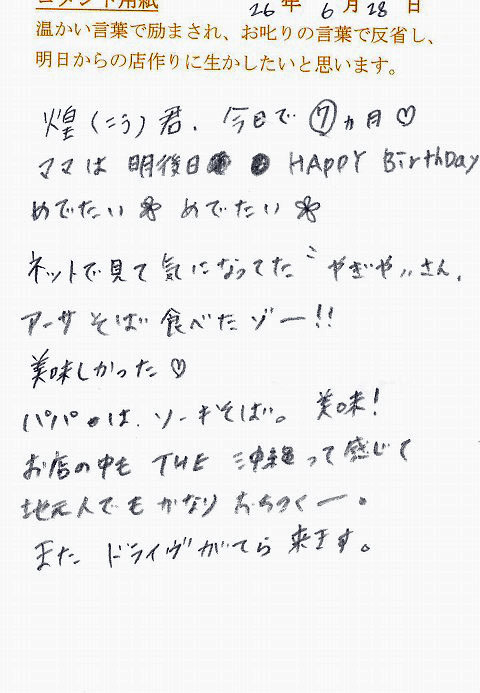 コメント用紙 26年 6月28日
温かい言葉で励まされ、お叱りの言葉で反省し、
明日からの店作りに生かしたいと思います。
煌(こう)君、今日で⑦ヵ月♡
ママは 明後日 HAPPY BirthDay
めでたい めでたい
ネットで見て気になってた〝やぎや〟さん、
アーサそば 食べたゾー!!
美味しかった♡
パパは、ソーキそば。 美味!
お店の中も THE 沖縄って感じで
地元人でもかなりおちつくー。
また ドライヴがてら 来ます。